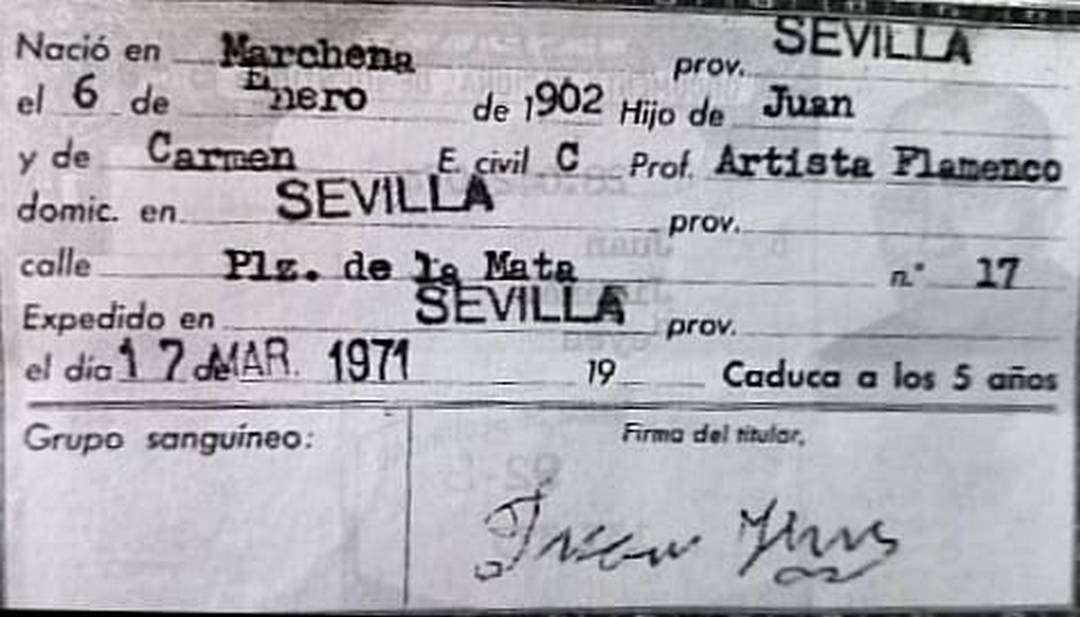 Nació en Marchena prov. SEVILLA
el 6 de Enero de 1902 Hijo de Juan
y de Carmen E. civil C Prof. Artista Flamenco
domic. en SEVILLA prov.
calle Plz. de la Mata n.° 17
Expedido en SEVILLA prov.
el día 17 de MAR. 1971 19 Caduca a los 5 años
Grupo sanguíneo: Firma del titular,
Juan